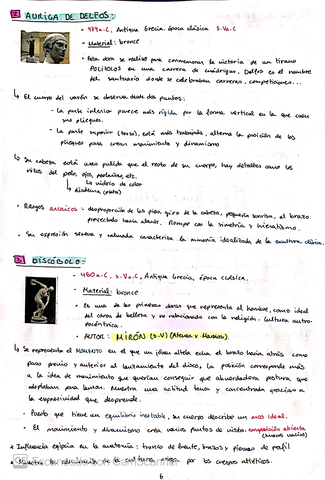 2 AURIGA DE DELFOS:
- 474a.C, Antigua Grecia, época clásica S.Va.C
- Material: bronce
- Esta obra se realizó para conmemorar la victoria de un tirano
en una carrera de cuádrigas. Delfos es el nombre
del santuario donde se celebraban carreras, competiciones...
↳ El cuerpo del varón se observa desde dos puntos:
- La parte inferior parece más rígida por la forma vertical en la que caen
sus pliegues.
- La parte superior (torso), está más trabajada, alterna la posición de los
pliegues para crear movimiento y dinamismo
↳ Su cabeza está más pulida que el resto de su cuerpo, hay detalles como los
rizos del pelo, ojos, pestañas, etc.
↳ vidrio de color
↳ diadema (plata)
↳ Rasgos arcaicos: desproporción de los pies, giro de la cabeza, pequeña sonrisa, el brazo
proyectado hacia delante. Rompen con la simetría y
↳ Su expresión serena y calmada caracteriza la idealizada de la escultura clásica.
3 DISCÓBOLO:
- 460a.C, S.Va.C, Antigua Grecia, época clásica.
- Material: bronce
- Es una de las primeras obras que representa al hombre, como ideal
del canon de belleza y no relacionado con la religión. Cultura antro-
pocéntrica.
- AUTOR: MIRÓN (S.V) (Atenea y Marsias).
↳ Se representa el MOMENTO en el que un joven atleta echa el brazo hacia atrás como
paso previo y anterior al lanzamiento del disco, la posición corresponde más
a la idea de movimiento que querían conseguir que a la verdadera postura que
adoptaban para lanzar. Muestra una actitud tensa y concentrada gracias a
la expresividad que desprende.
- Puesto que tiene un equilibrio inestable, su cuerpo describe un arco ideal.
- El movimiento y dinamismo crea varios puntos de vista: composición abierta
Influencia egipcia en la anatomía: tronco de frente, brazos y piernas de perfil
Muestra la de la cultura por los cuerpos atléticos.
Escaneado con CamScanner
6